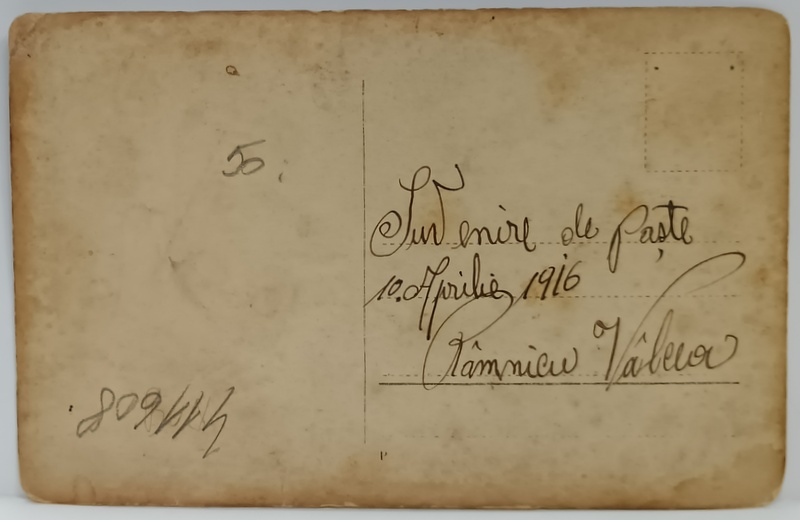 50
Suvenire de Paște
10. Aprilie 1916
Râmnicu Vâlcea